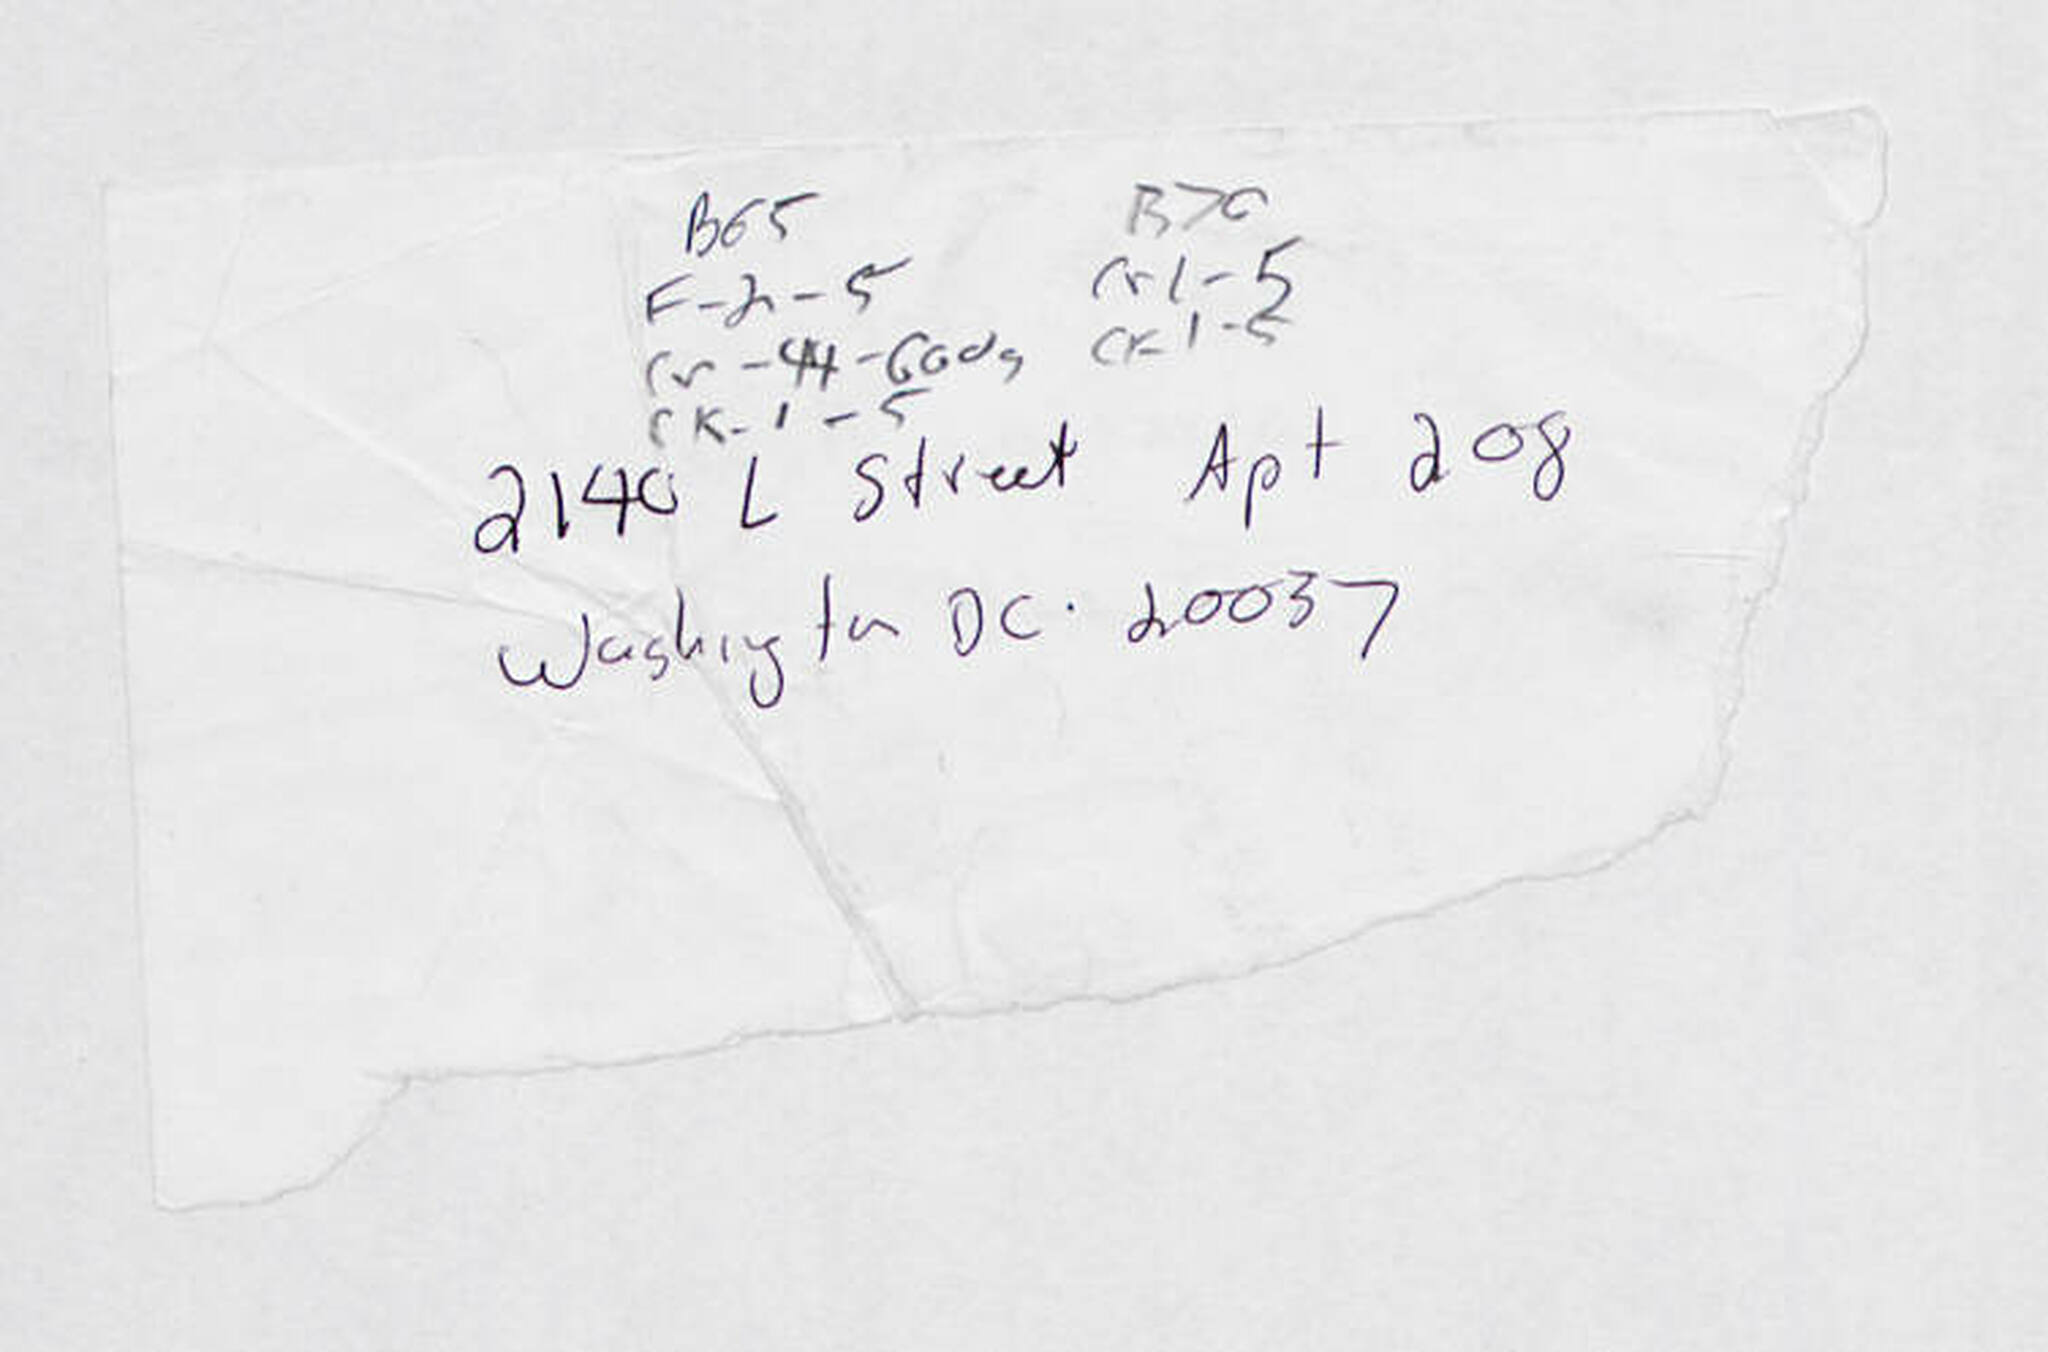 B65
F-2-5
Cr-44-Gods
CK-1-5
B70
Cr1-5
CK-1-5
2140 L Street Apt 208
Washington DC. 20037